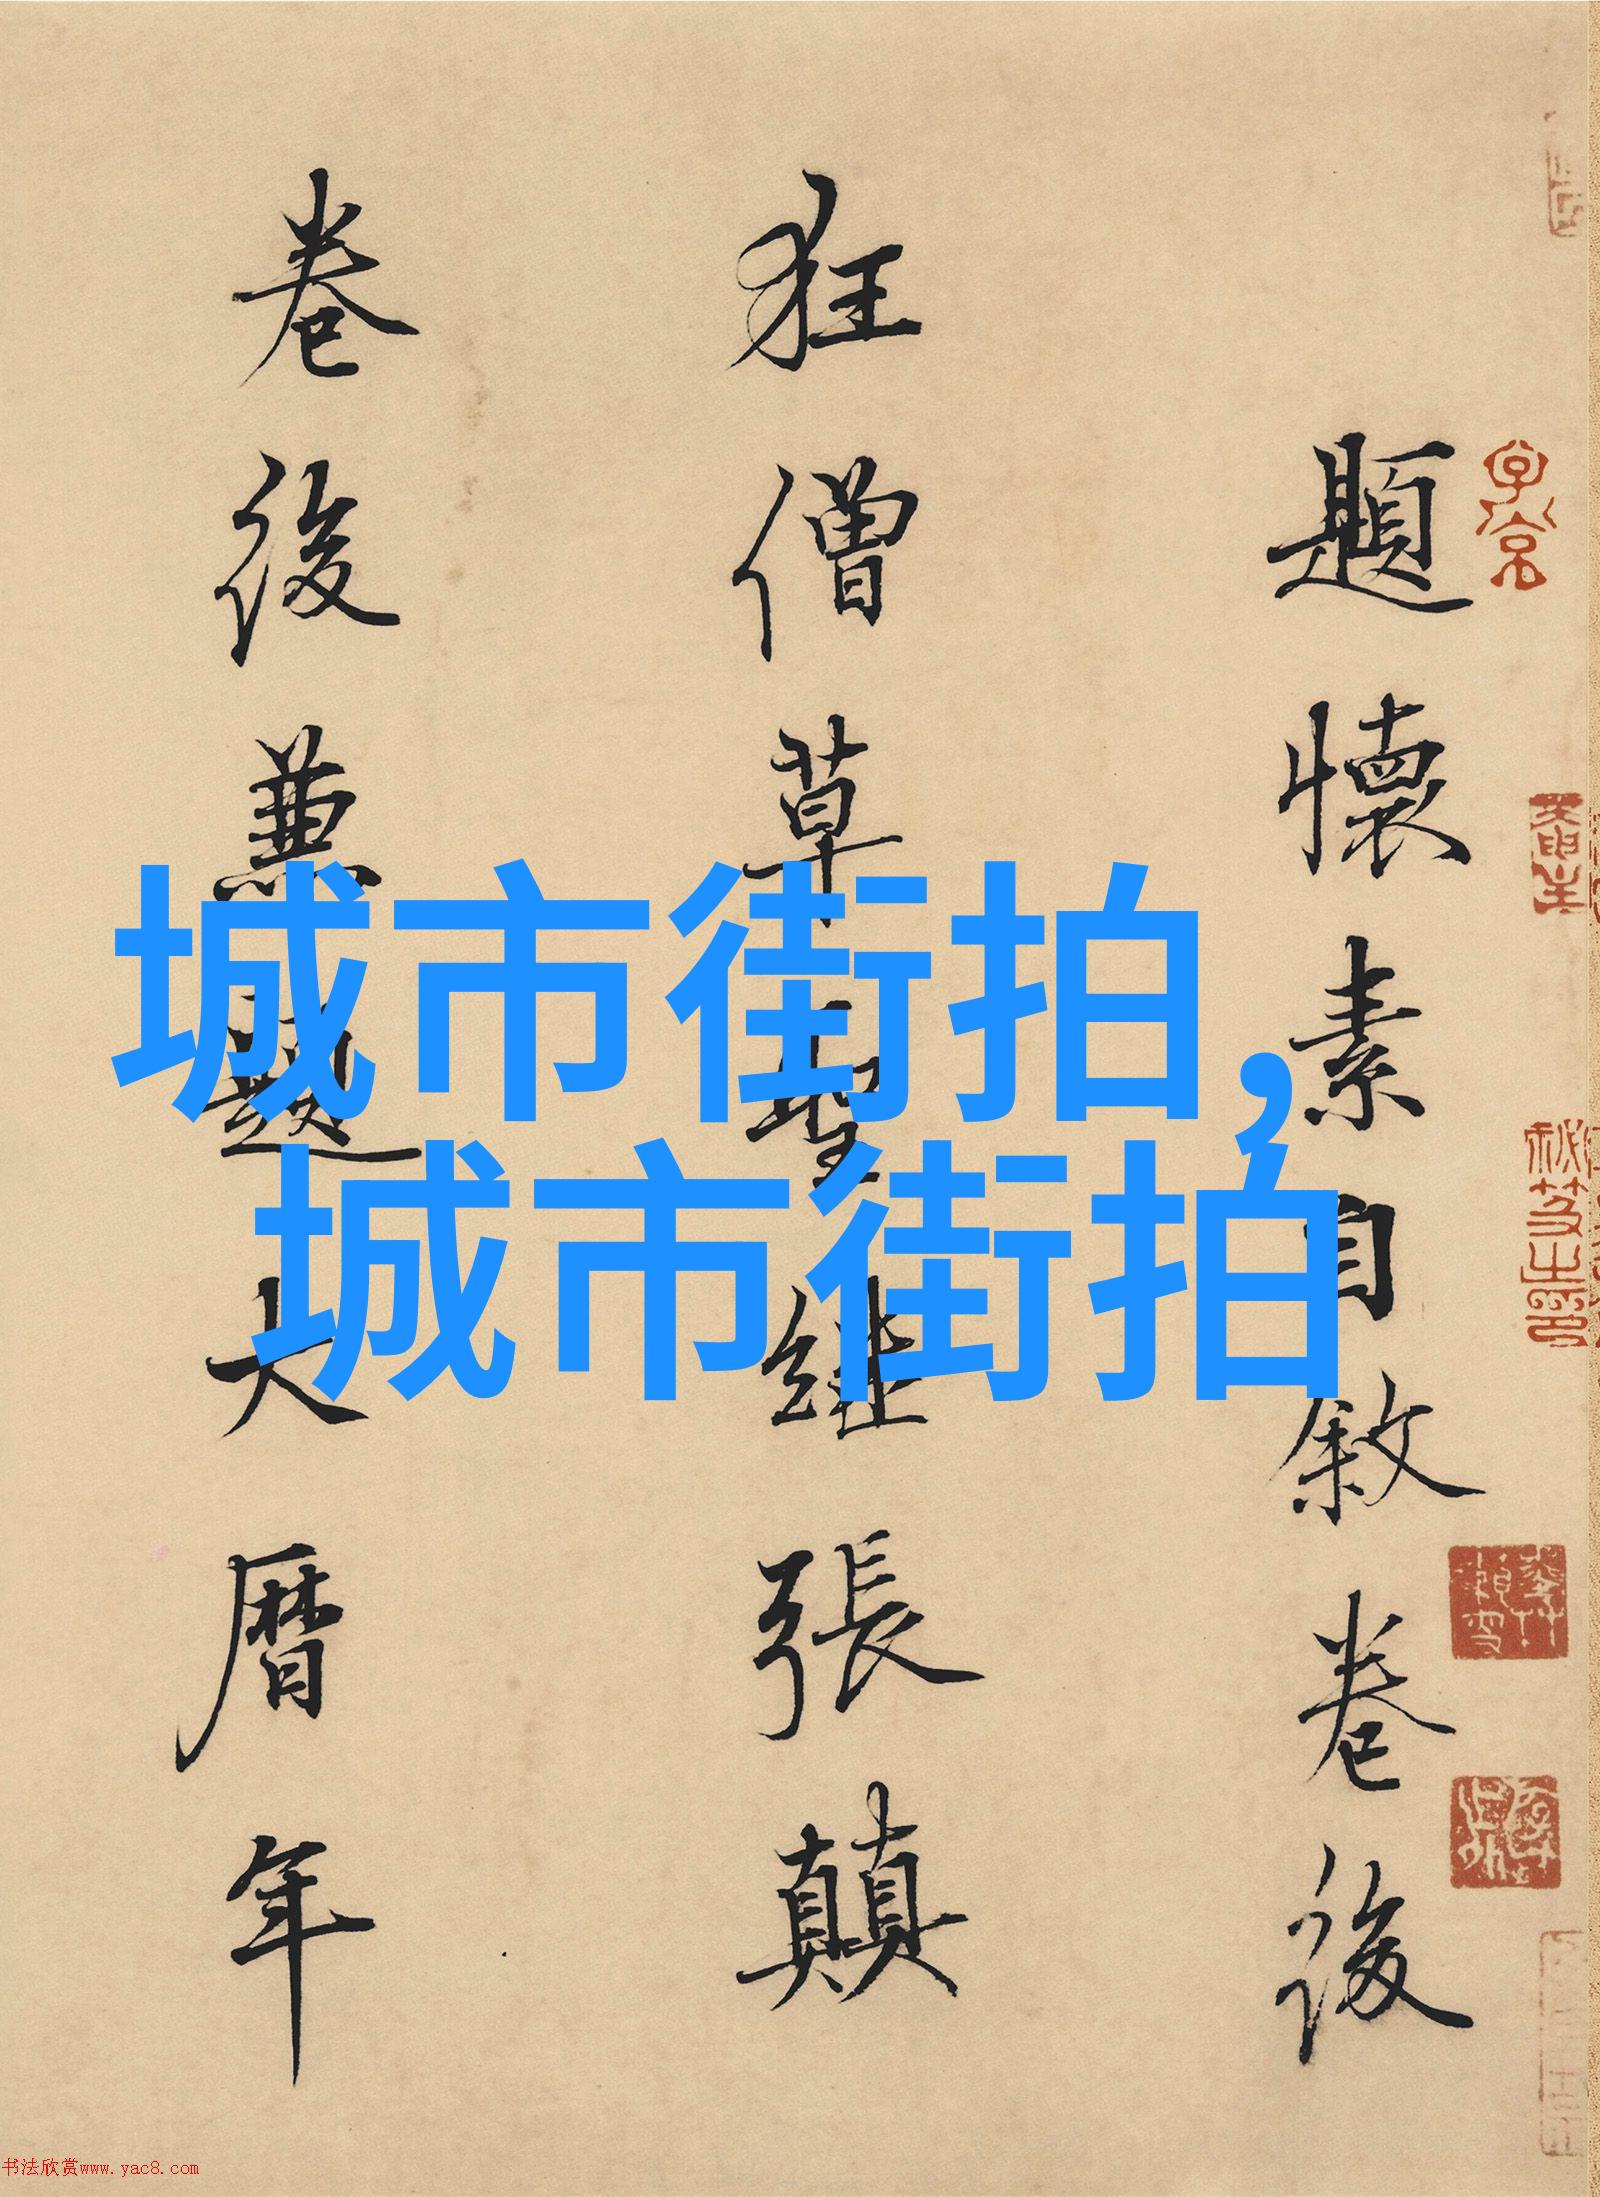 題懷素自敘卷後
狂僧草聖继張顛
卷後兼題大曆年
城市街拍,
城市街拍
书法欣赏www.yac8.com